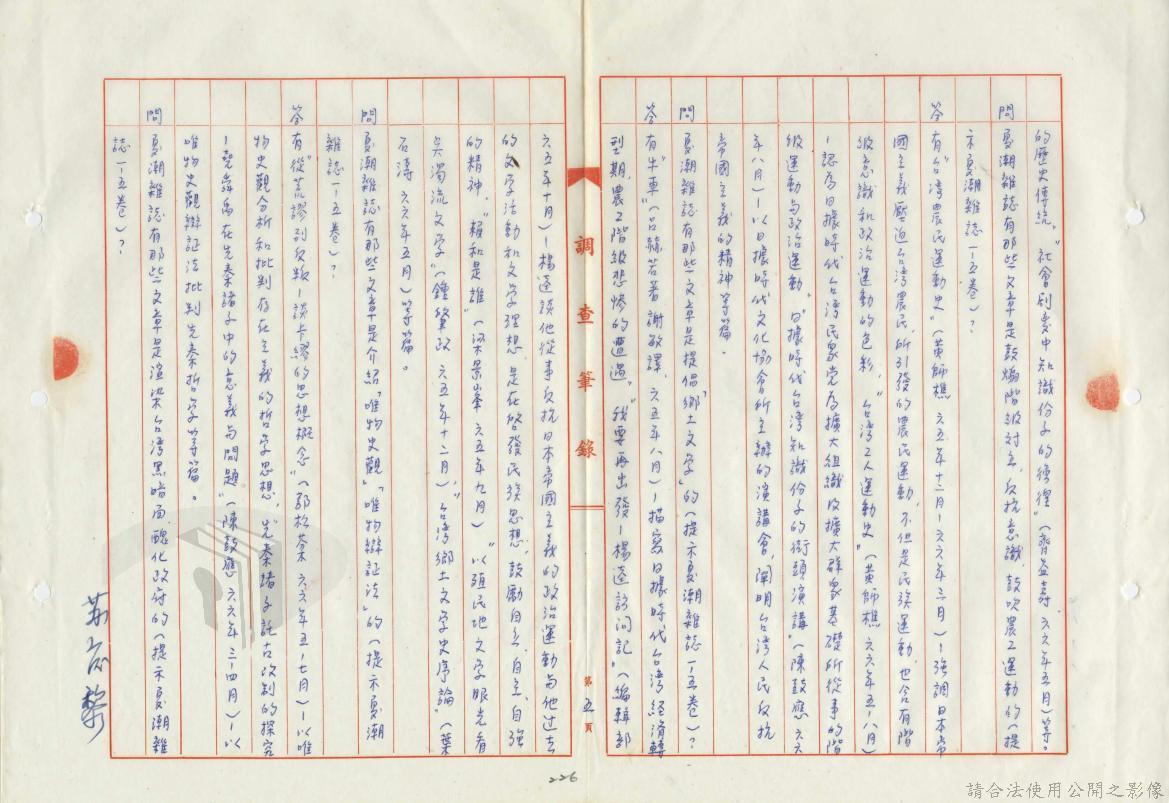 的歷史傳統。”“社會劇變中知識份子的徬徨”（齊益壽．六六年五月）等。
問 夏潮雜誌有那些文章是鼓煽階級對立、反抗意識，鼓吹農工運動的（提
示夏潮雜誌一─五卷）？
答 有“台灣農民運動史”（黃師樵 六五年十二月－六六年三月）－強調日本帝
國主義壓迫台灣農民，所引發的農民運動，不但是民族運動，也含有階
級意識和政治運動的色彩，“台灣工人運動史”（黃師樵 六六年五－八月）
－認為日據時代台灣民眾党為擴大組織及擴大群眾基礎所從事的階
級運動與政治運動，“日據時代台灣知識份子的街頭演講”（陳鼓應 六六
年八月）－以日據時代文化協會所主辦的演講會，闡明台灣人民反抗
帝國主義的精神等篇。
問 夏潮雜誌有那些文章是提倡「鄉土文學」的（提示夏潮雜誌一─五卷）？
答 有“牛車”（呂赫若著 謝敏譯，六五年八月）－描寫日據時代台灣經濟轉
型期，農工階級悲慘的遭遇。“我要再出發－楊逵訪問記”（編輯部
六五年十月）－楊逵談他從事反抗日本帝國主義的政治運動與他過去
的文學活動和文學理想，是在啓發民族思想，鼓勵自立、自主、自強
的精神，“賴和是誰”（梁景峯 六五年九月），“以殖民地文學眼光看
吳濁流文學”（鍾肇政 六五年十二月），“台灣鄉土文學史序論”（葉
石濤 六六年五月）等篇。
問 夏潮雜誌有那些文章是介紹「唯物史觀」「唯物辯証法」的（提示夏潮
雜誌一─五卷）？
答 有“從荒謬到反叛－談卡繆的思想概念”（郭松棻 六六年五－七月）－以唯
物史觀分析和批判存在主義的哲学思想，“先秦諸子託古改制的探究
－堯舜禹在先秦諸子中的意義与問題”（陳鼓應 六六年三－四月）－以
唯物史觀辯証法批判先秦哲学等篇。
問 夏潮雜誌有那些文章是渲染台灣黑暗面，醜化政府的（提示夏潮雜
誌一─五卷）？
調查筆錄
第五頁
226
請合法使用公開之影像